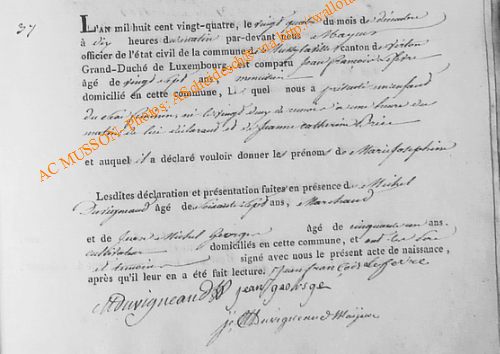 37
L'AN mil huit cent vingt-quatre, le vingt quatre du mois de décembre
à dix heures du matin par-devant nous Mayeur
officier de l'état civil de la commune de canton de Virton
Grand-Duché de Luxembourg, est comparu jean françois Lefevre
âgé de vingt sept ans menuisier
domicilié en cette commune, Lequel nous a présenté un enfant
du sexe féminin, né le vingt deux de ce mois à une heure du
matin de lui déclarant et de Jeanne Catherine
et auquel il a déclaré vouloir donner les prénoms de Marie Josephine
Lesdites déclaration et présentation faites en présence de Michel
Duvigneaud âgé de soixante sept ans, Marchand
et de Jean Michel âgé de cinquante un ans.
cultivateur domiciliés en cette commune, et ont les père
et témoins signé avec nous le présent acte de naissance,
après qu'il leur en a été fait lecture. jean françois Lefevre
MDuvigneaud jean
Duvigneaud Maijeur
AC MUSSON-Phelps: Af